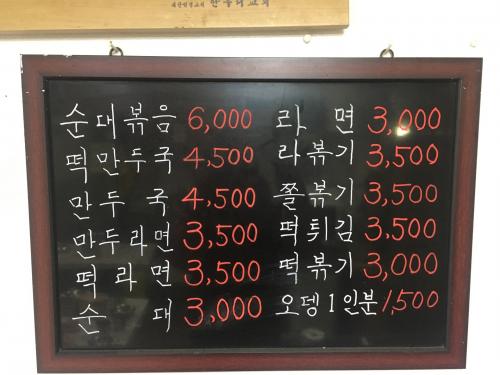 순대볶음 6,000
떡만두국 4,500
만두국 4,500
만두라면 3,500
떡라면 3,500
순대 3,000
라면 3,000
라볶기 3,500
쫄볶기 3,500
떡튀김 3,500
떡볶기 3,000
오뎅1인분 1,500